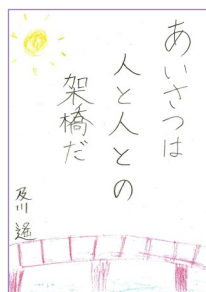 あいさつは
人と人との
架橋だ
及川 遥